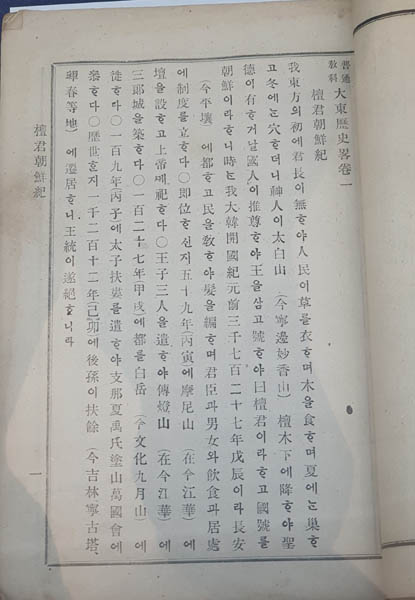 普通教科 大東歷史畧卷一
檀君朝鮮紀
我東方의初에君長이無ᄒᆞ야人民이草를衣ᄒᆞ며木을食ᄒᆞ며夏에ᄂᆞᆫ巢ᄒᆞ
고冬에ᄂᆞᆫ穴ᄒᆞ더니神人이太白山 (今寧邊妙香山) 檀木下에降ᄒᆞ야聖
德이有ᄒᆞ거날國人이推尊ᄒᆞ야王을삼고號ᄒᆞ야曰檀君이라ᄒᆞ고國號를
朝鮮이라ᄒᆞ니時ᄂᆞᆫ我大韓開國紀元前三千七百二十七年戊辰이라長安
(今平壤) 에都ᄒᆞ고民을敎ᄒᆞ야髮을編ᄒᆞ며君臣과男女와飮食과居處
에制度를立ᄒᆞ다○即位ᄒᆞ신지五十九年(丙寅에摩尼山 (在今江華) 에
壇을設ᄒᆞ고上帝ᄭᅴ祀ᄒᆞ다○王子三人을遣ᄒᆞ야傳燈山 (在今江華) 에
三郞城을築ᄒᆞ다○一百二十七年甲戌에都를白岳 (今文化九月山) 에
徙ᄒᆞ다○一百九年(丙子에太子扶婁를遣ᄒᆞ야支那夏禹氏塗山萬國會에
參ᄒᆞ다○歷世ᄒᆞᆫ지一千二百十二年(己)卯에後孫이扶餘 (今吉林寧古塔、
琿春等地) 에遷居ᄒᆞ니王統이遂絕ᄒᆞ니라
檀君朝鮮紀
一